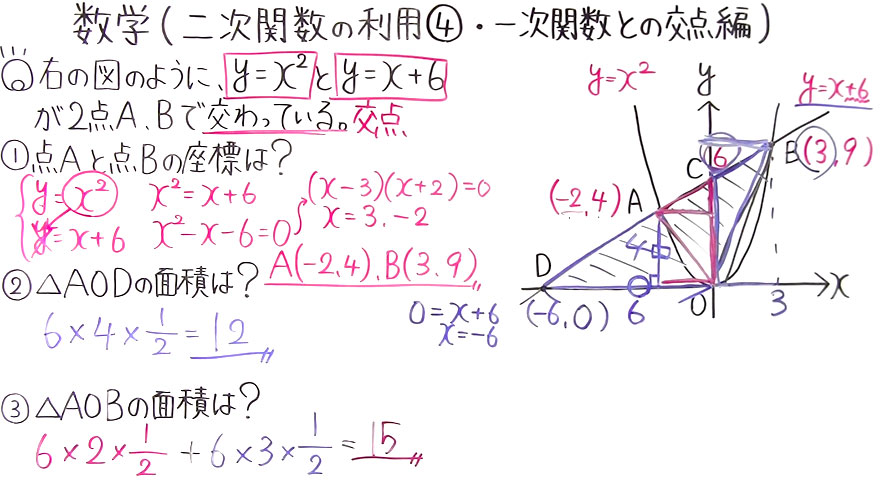 数学(二次関数の利用④・一次関数との交点編)
◎右の図のように、y=x²とy=x+6
が2点A、Bで交わっている。交点
①点Aと点Bの座標は?
y=x² x²=x+6 (x-3)(x+2)=0
y=x+6 x²-x-6=0 x=3,-2
A(-2,4)、B(3,9)
②△AODの面積は?
6×4×1/2=12
0=x+6
x=-6
③△AOBの面積は?
6×2×1/2+6×3×1/2=15
y=x²
y
y=x+6
C
6
B(3,9)
(-2,4)
A
4
D
(-6,0)
6
O
3
x